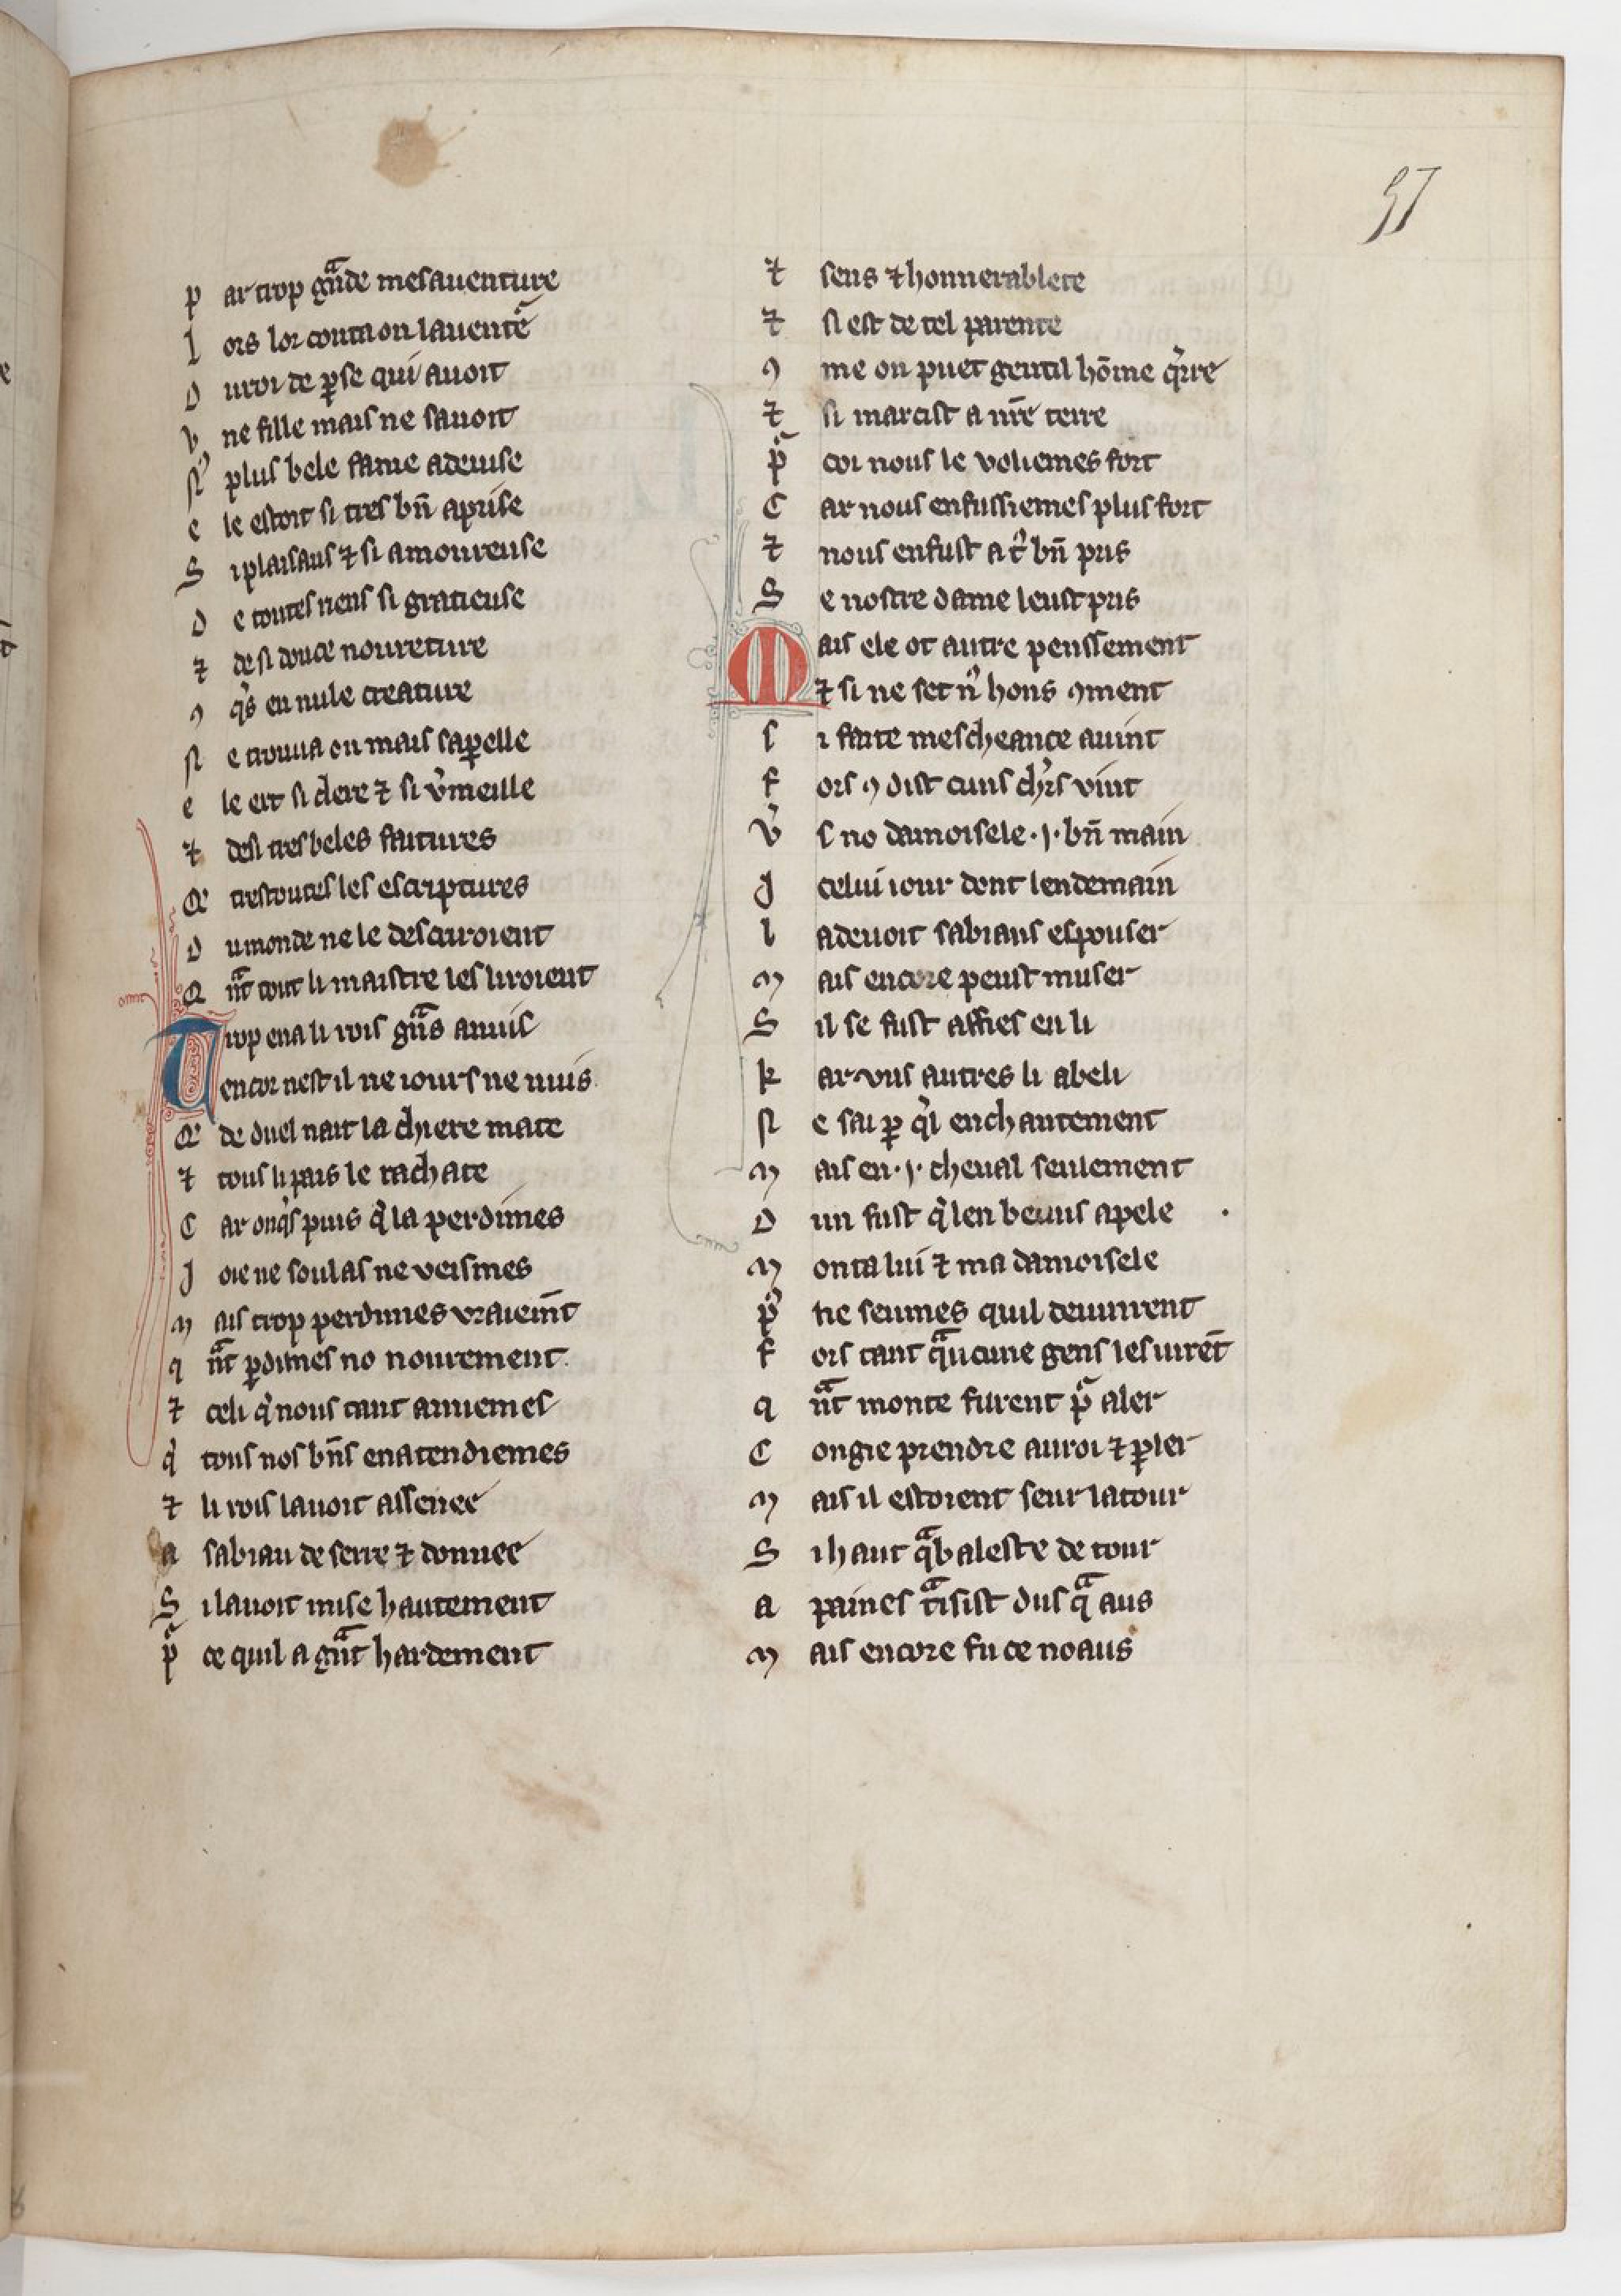 57
p ar trop gͣnde mesauenture
l ors lor conta on lauentẽ
D u roi de ꝑse qui auoit
v ne fille mais ne sauoit
N᷒ plus bele fame a deuise
e le estoit si tres bn̄ aprise
S i plaisans ⁊ si amoureuse
D e toutes riens si gratieuse
⁊ de si douce noureture
ꝯ qͥs en nule creature
N e trouua on mais saꝑelle
e le ert si clere ⁊ si v᷑meille
⁊ de si tres beles faitures
Q̃ trestoutes les escriptures
D u monde ne le descriroient
Q nͣt tout li maistre les liroient
T rop en a li rois gͣns anuis
encor nest il ne iours ne nuis
Q̃ de duel nait la chiere mate
⁊ tous li pais le rachate
C ar onqͥs puis qͥ la perdimes
J oie ne soulas ne veismes
M ais trop perdimes vraiem̄t
q nͣt ꝑdimes no nourement
⁊ celi qͥ nous tant amiemes
qͥ tous nos bn̄s en atendiemes
⁊ li rois lauoit assenee
a sabian de serre ⁊ donnee
S i lauoit mise hautement
p̃ ce quil a gͣnt hardement
⁊ sens ⁊ honnerablete
⁊ si est de tel parente
ꝯ me on puet gentil hõme qͥrre
⁊ si marcist a nr̄e terre
p̃ coi nous le voliemes fort
C ar nous en fussiemes plus fort
⁊ nous en fust a t᷑ bn̄ pris
S e nostre dame leust pris
M ais ele ot autre penssement
⁊ si ne set n᷒ hons ꝯment
s i faite mescheance auint
f ors ꝯ dist cuns chr̛s vint
v᷑ s no damoisele ·j· bn̄ main
J celui iour dont lendemain
l a deuoit sabians espouser
M ais encore peust muser
S il se fust affies en li
k ar vns autres li abeli
N e sai ꝑ qͥl enchantement
M ais en ·j· cheual seulement
D un fust qͥ len benus apele
M onta lui ⁊ ma damoisele
p᷒ ne seumes quil deuinrent
f ors tant qͣucune gens les uirẽt
q nͣt monte furent p̃ aler
C ongie prendre au roi ⁊ ꝑler
M ais il estoient seur la tour
S i haut qͣbalestre de tour
a paines tͣisist dus qͣ aus
M ais encore fu ce noaus